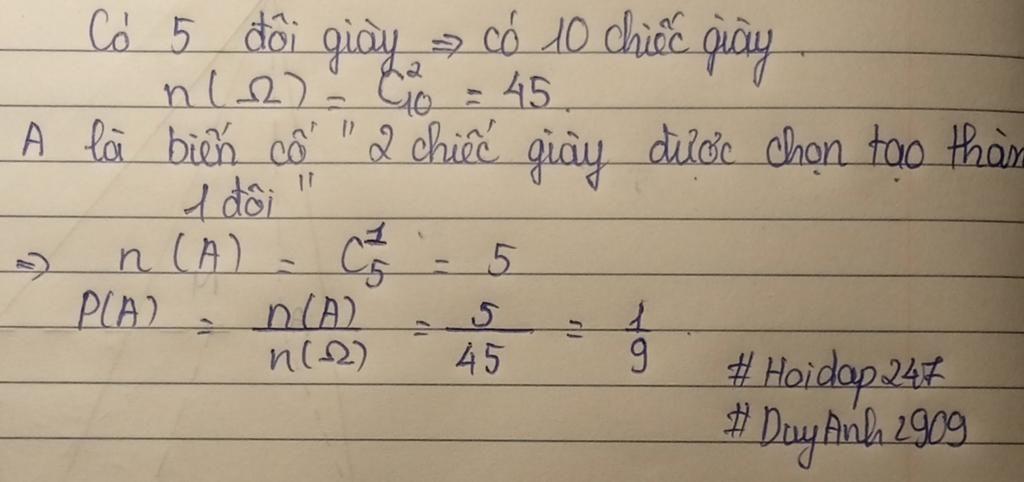 Có 5 đôi giày => có 10 chiếc giày.
n(Ω) = C²₁₀ = 45.
A là biến cố "2 chiếc giày được chọn tạo thàn
1 đôi"
=> n(A) = C¹₅ = 5
P(A) = n(A)/n(Ω) = 5/45 = 1/9.
#Hoidap247
#DuyAnh2909